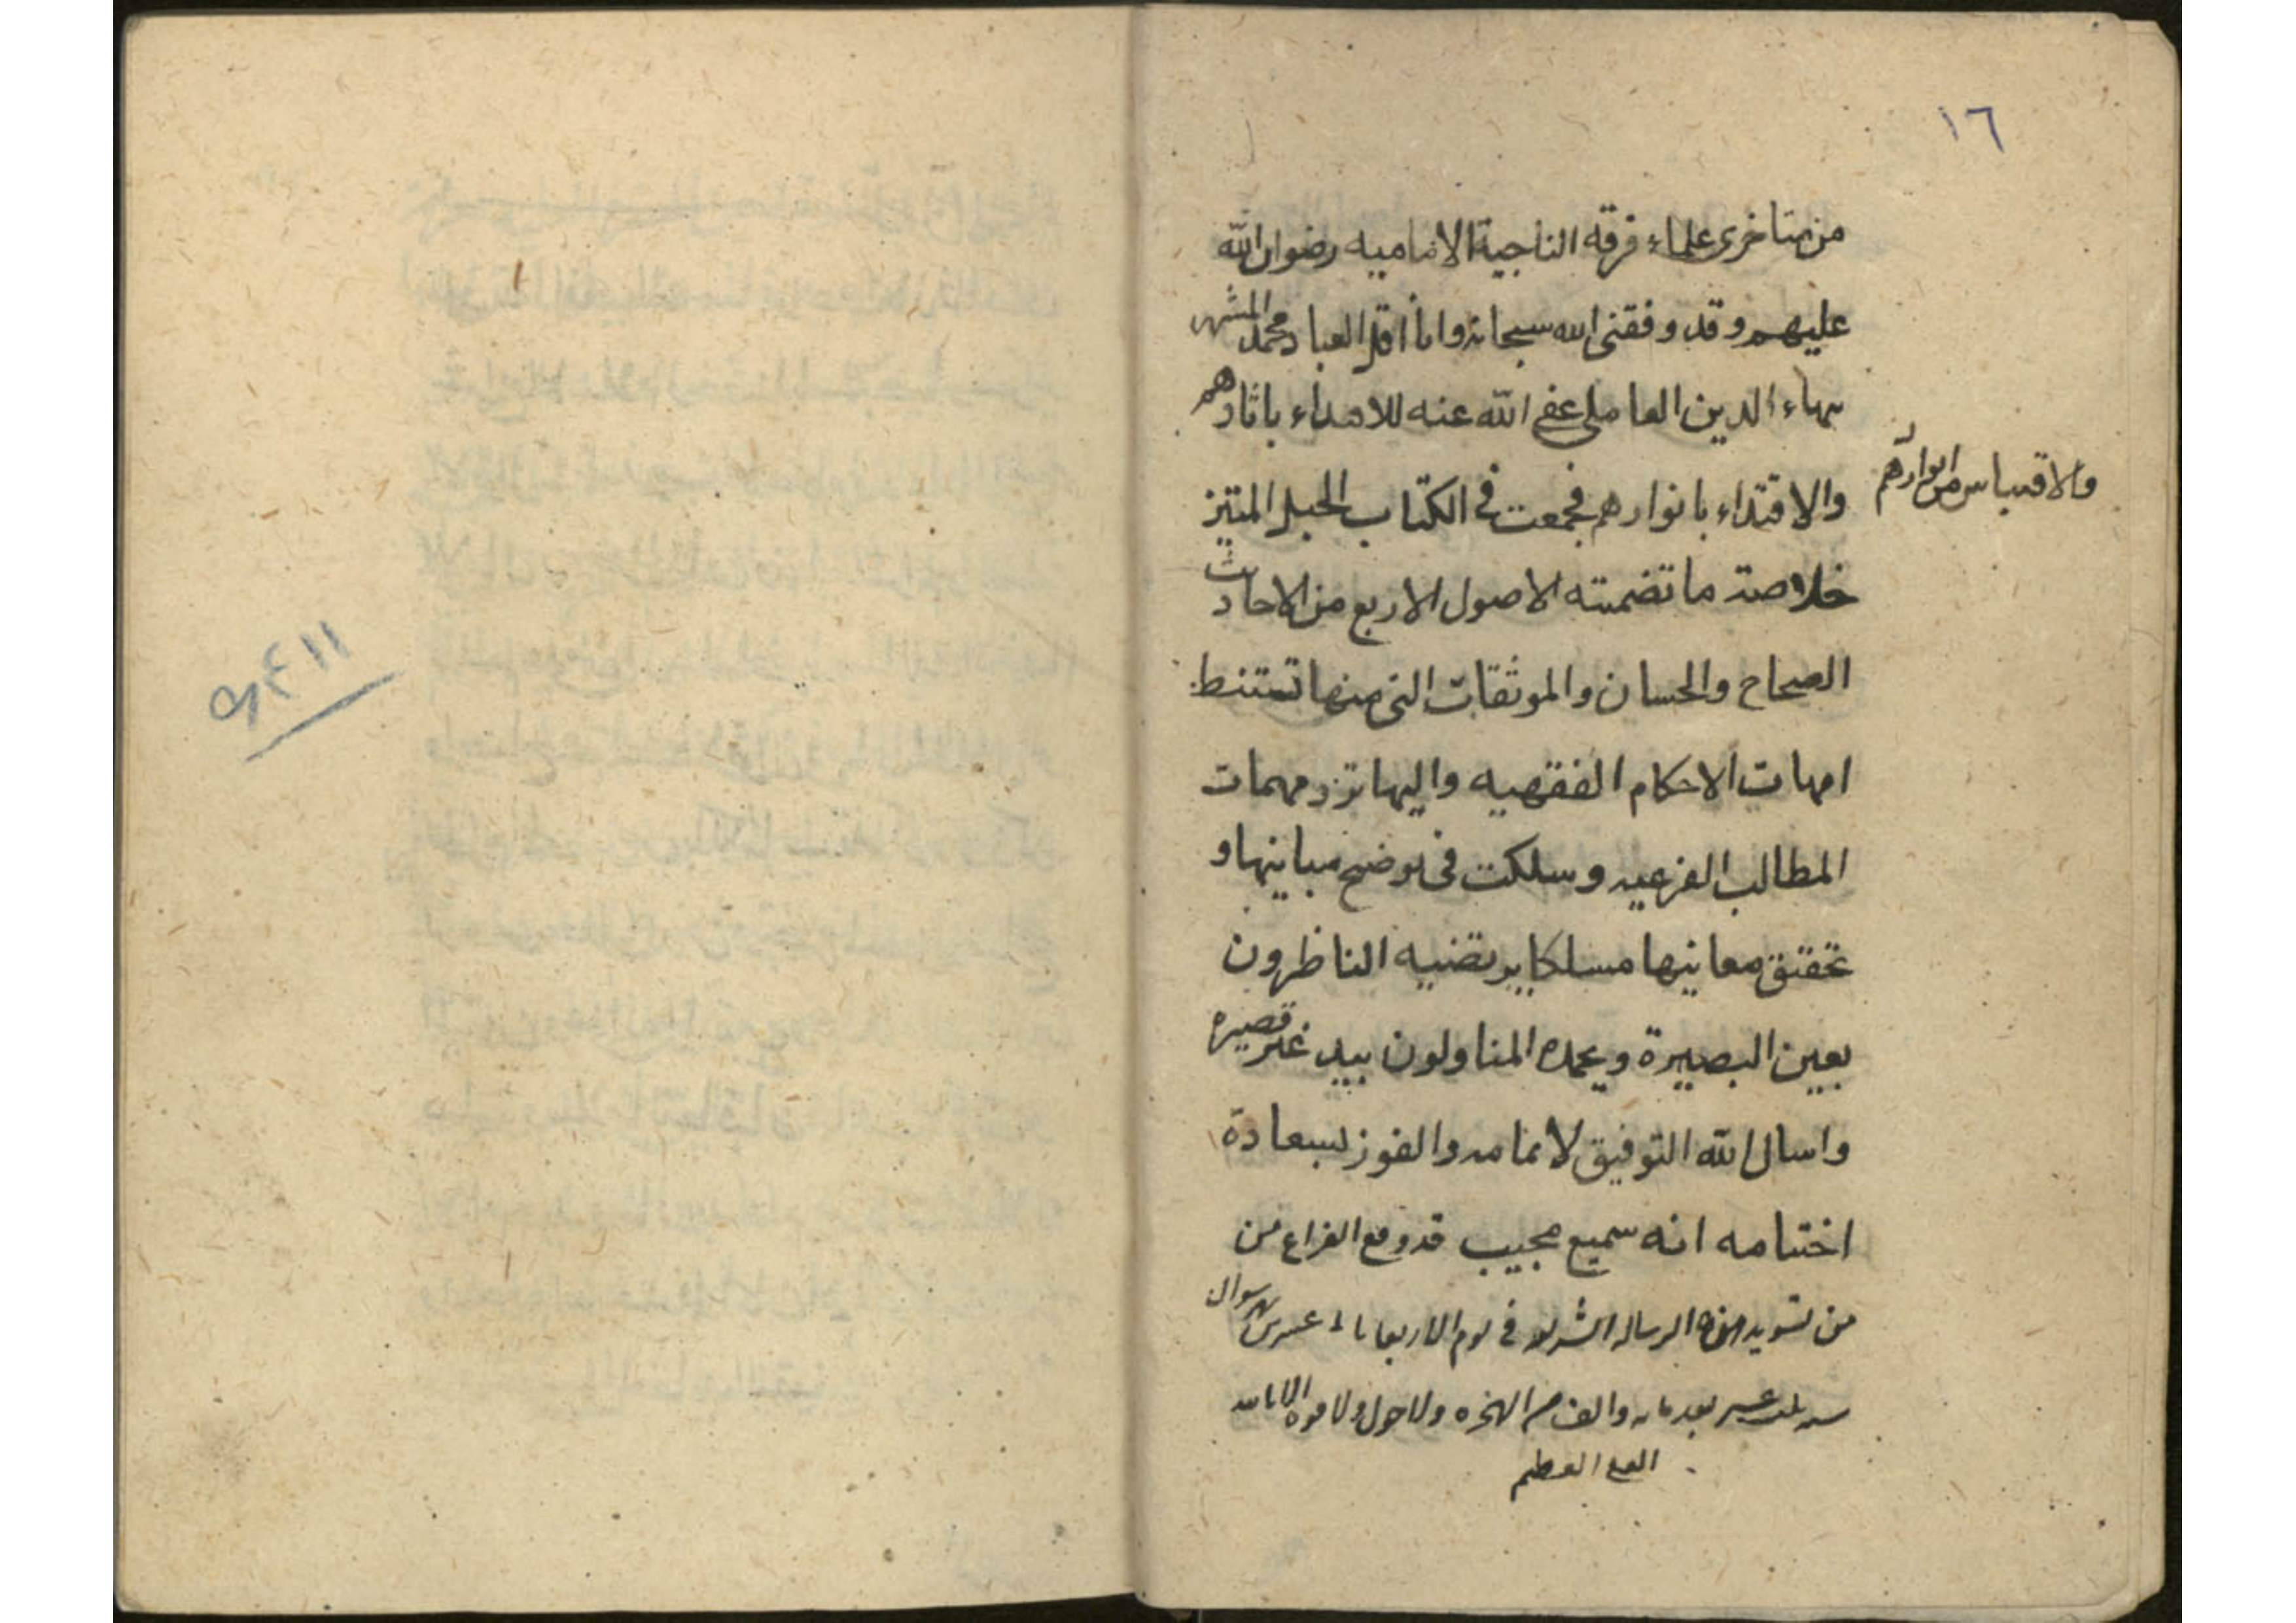 ١٦
من متاخرى علماء فرقه الناجية الاماميه رضوان الله
عليهم وقد وفقنى الله سبحانه وانا اقل العباد محمد المشهر
بهاء الدين العاملى عفى الله عنه للاهداء باثارهم
والاقتداء بانوارهم فجمعت فى الكتاب الحبل المتين
والاقتباس من انوارهم
خلاصة ما تضمنته الاصول الاربع من الاحاديث
الصحاح والحسان والموثقات التى منها تستنبط
امهات الاحكام الفقهيه واليها ترد مهمات
المطالب الفرعيه وسلكت فى توضيح مبانيها و
تحقيق معانيها مسلكا يرتضيه الناظرون
بعين البصيرة ويحمده المناولون بيد غير قصيره
واسال الله التوفيق لاتمامه والفوز بسعادة
اختتامه انه سميع مجيب قد وقع الفراغ من
من تسويد هذه الرساله الشريفه فى يوم الاربعا عشر شوال
سنه ثلث عشر بعد مائه والف من الهجره ولا حول ولا قوه الا بالله
العلى العظيم